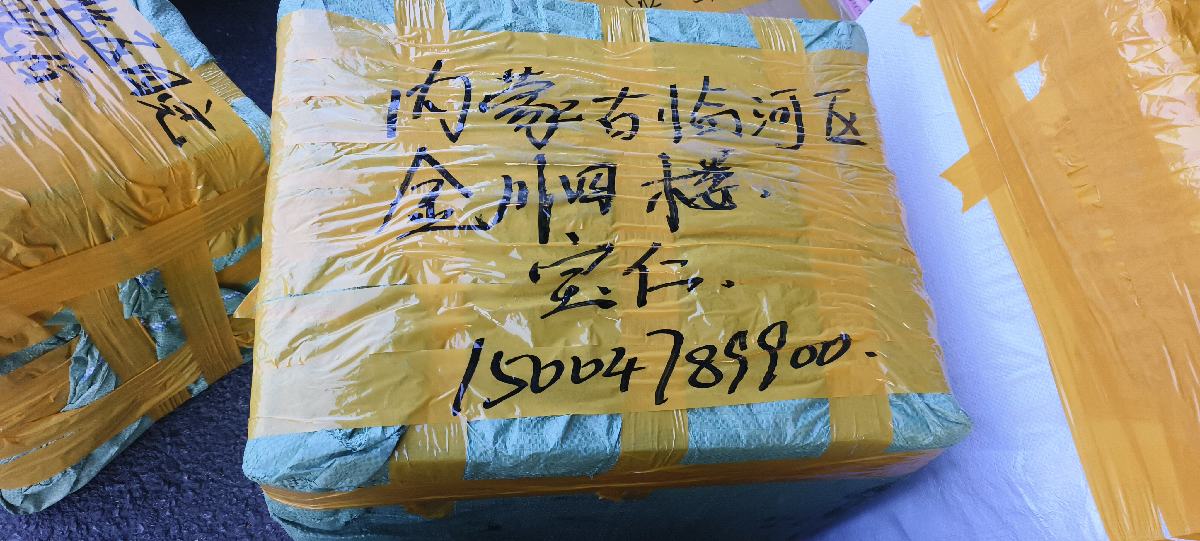 内蒙古临河区
金川四楼.
宝仁.
15004789900.